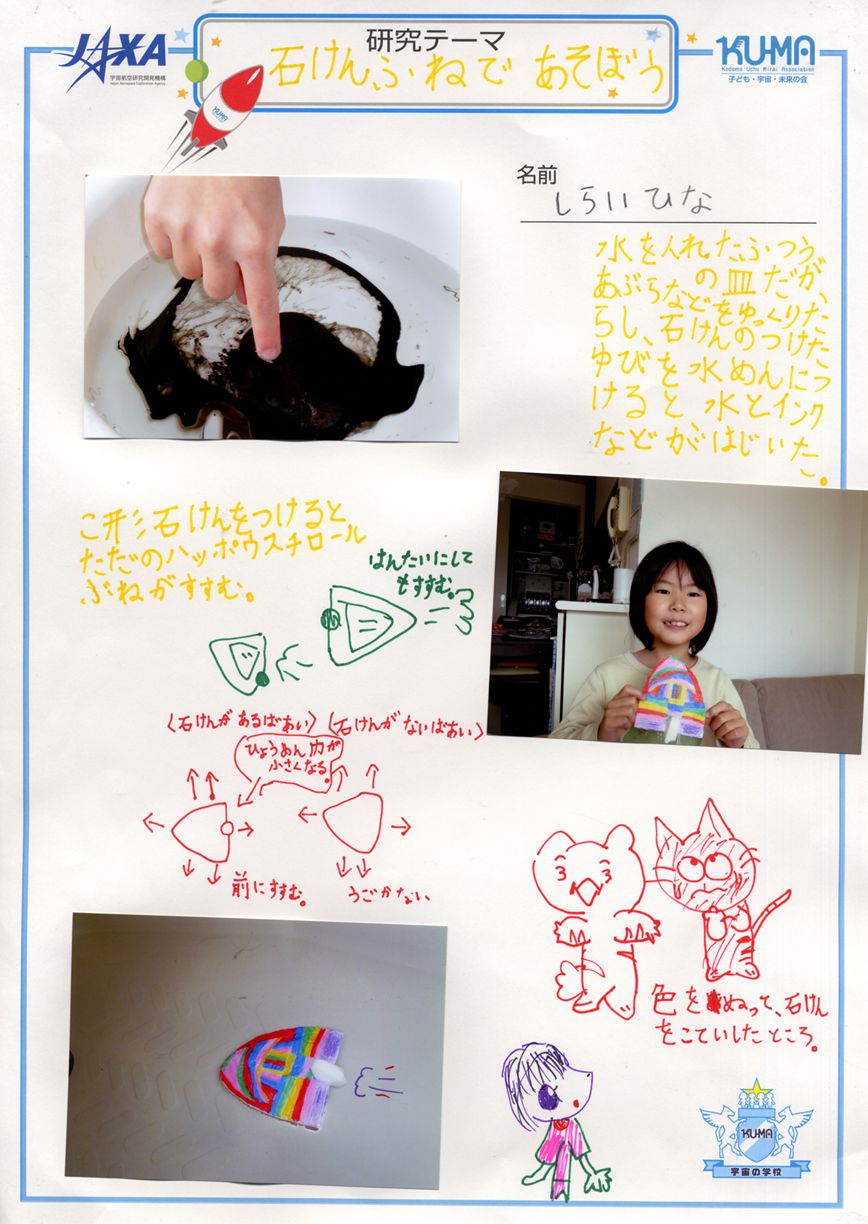 JAXA
宇宙航空研究開発機構
Japan Aerospace Exploration Agency
研究テーマ
石けんふねであそぼう
KU-MA
Kodomo Uchu Mirai Association
子ども・宇宙・未来の会
KU-MA
名前
しらいひな
水を入れたふつう
の皿だが、
あぶらなどをゆっくりた
らし、石けんのつけた
ゆびを水めんにつ
けると水とインク
などがはじいた。
石けんをつけると
ただのハッポウスチロール
ぶねがすすむ。
はんたいにして
もすすむ。
〈石けんがあるばあい〉
〈石けんがないばあい〉
ひょうめん力が
小さくなる。
前にすすむ。
うごかない
色をぬって、石けん
をこていしたところ。
KU-MA
宇宙の学校